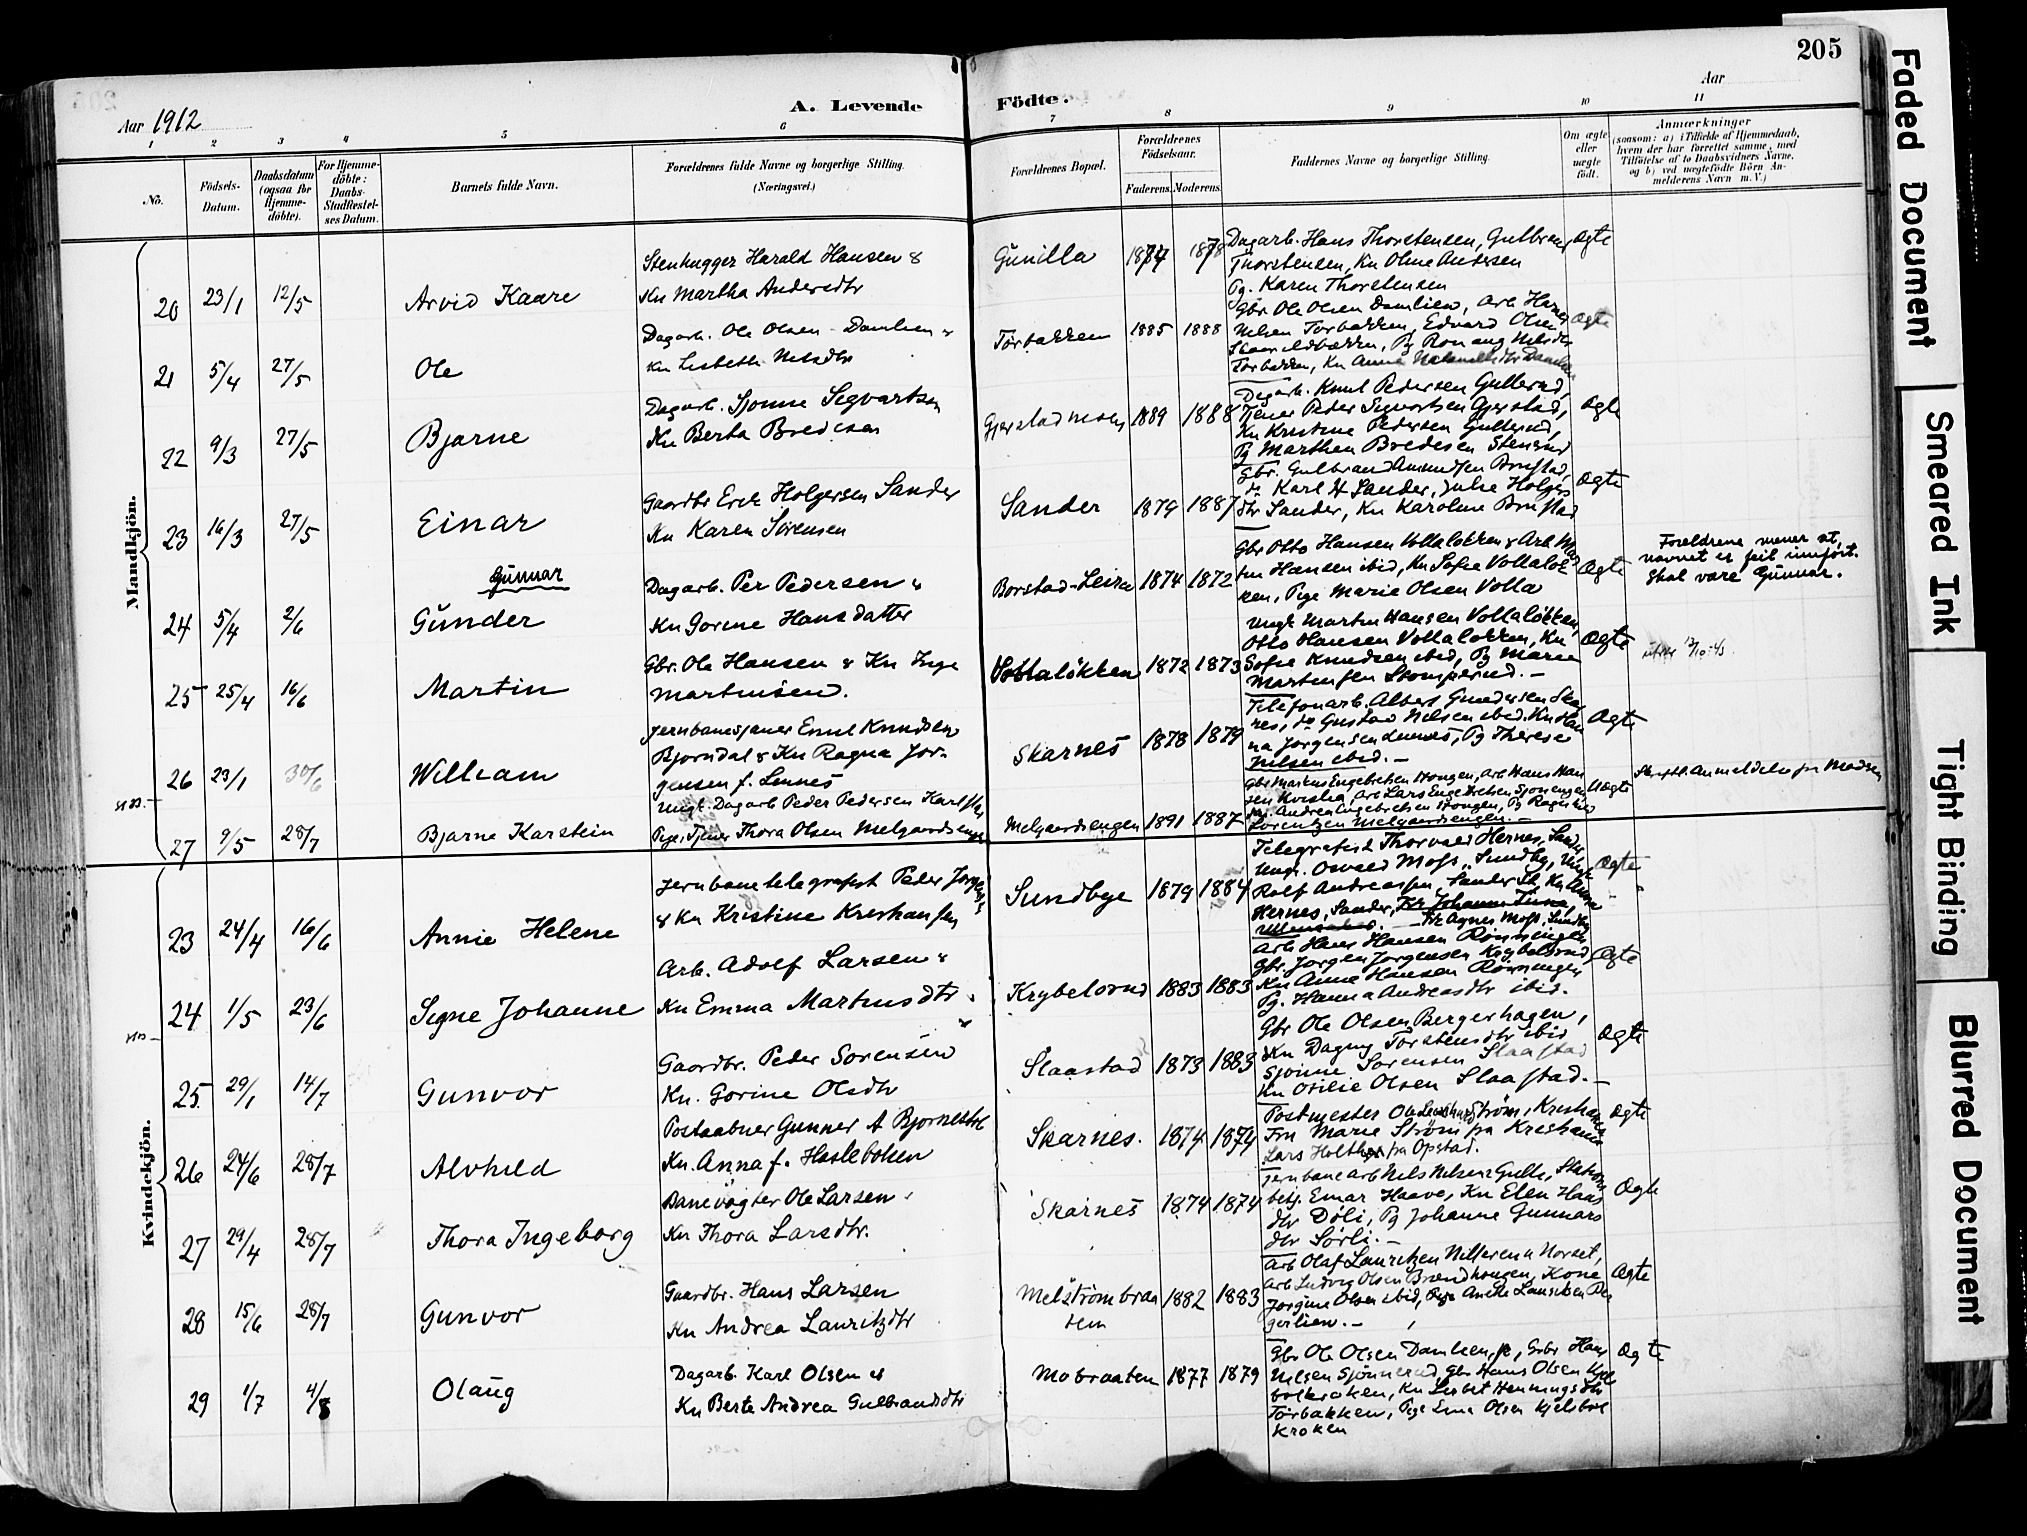 205
Aar 1912
A. Levende Födte.
Aar
1 2 3 4 5 6 7 8 9 10 11
No.
Födsels-Datum.
Daabsdatum (ogsaa for Hjemme-döbte).
For Hjemme-döbte: Daabs-Stadfestel-ses Datum.
Barnets fulde Navn.
Forældrenes fulde Navne og borgerlige Stilling. (Næringsvei.)
Forældrenes Bopæl.
Forældrenes Födselsaar.
Faderens. Moderens.
Faddernes Navne og borgerlige Stilling.
Om ægte eller uægte födt.
Anmærkninger
(saasom: a) i Tilfælde af Hjemmedaab, hvem der har forrettet samme, med Tilföielse af to Daabsvidners Navne, og b) ved uægtefödte Börn An-melderens Navn m. V.)
Mandkjön.
20 23/1 12/5 Arvid Kaare
Stenhugger Harald Hansen &
Kn Martha Andersdtr
Gunilla 1874 1878
Dagarb. Hans Thorstensen, Gulbran
Thorstensen, Kn Oline Andersen
Pg. Karen Thorstensen
Ægte
21 5/4 27/5 Ole
Dagarb. Ole Olsen Damlien &
Kn Lisbeth Nilsdtr
Törbakken 1885 1888
Gbr Ole Olsen Damlien, Arb Hans
Nilsen Torbakken, Edvard Olsen
Törbakken, Kn Anne
Ægte
22 9/3 27/5 Bjarne
Dagarb. Sjonne Segvartsen
Kn Berta Bredesen
Gjerstadmoen 1889 1888
Dagarb. Knut Pedersen Gullerud,
Tjener Peder Sigvartsen Gjerstad,
Kn Kristine Pedersen Gullerud,
Pg Marthea Bredesen Stenerud
Ægte
23 16/3 27/5 Einar
Gaardbr Erik Holgersen Sander
Kn Karen Sörensen
Sander 1879 1887
Gbr. Gulbrand Amundsen Brustad,
do Karl H Sander, Julie Holger
dtr Sander, Kn Karoline Brustad
Ægte
24 5/4 2/6 Gunnar
Gunder
Dagarb. Per Pedersen &
Kn Gorine Hansdatter
Borstad-Leira 1874 1872
Gbr Otto Hansen Vollaløkken & Arb Mar
tin Hansen ibid, Kn Sofie Volaløk
ken, Pige Marie Olsen Volla
Ægte
Foreldrene mener at
navnet er feil innført.
Skal være Gunnar.
25 25/4 16/6 Martin
Gbr. Ole Hansen & Kn Inga
Martinsen.
Vollaløkken 1872 1873
Ungk Martin Hansen Vollaløkken,
Otto Hansen Vollaløkken, Kn
Sofie Knudsen ibid, Pg Marie
Martinsen Stomperud. –
Ægte
13/10-43.
26 23/1 30/6 William
Jernbanesjauer Emil Knudsen
Bjorndal & Kn Ragna Jor-
gensen f. Lennes
Skarnes 1878 1879
Telefonarb. Albert Gundersen Skar
nes, do Gustav Nilsen ibid. Kn Han
na Jorgensen Lennes, Pg Therese
Nilsen ibid. –
Ægte
27 9/5 28/7 Bjarne Karstein
Ungk. Dagarb Peder Pedersen
Pige, Tjener Thora Olsen Melgaardsengen
Melgaardsengen 1891 1887
Gbr Markus Engebretsen Hongen, Arb Hans Han
sen Kvisla, Arb Lars Engebretsen
Andrea Engebretsen Hongen, Pg Ragnhild
Lorentzen Melgaardsengen. –
Uægte
Skriftl. Anmeldelse fra Moderen
Kvindekjön.
23 24/4 16/6 Annie Helene
Jernbanetelegrafist Peder Jorgensen
& Kn Kristine Kristiansen
Sundbye 1879 1884
Telegrafist Thorvald Hernes, Sander
Ungk. Osvald Moss, Sundby, Ungk
Rolf Andreassen, Sander St. Kn Anna
Hernes, Sander, Frk Johanne
Frk Agnes Moss, Sundby
Ægte
24 1/5 23/6 Signe Johanne
Arb. Adolf Larsen &
Kn Emma Martinsdtr
Krybelorud 1883 1883
Arb Hans Hansen Rönningen
Gbr. Jorgen Jorgensen Krybelorud
Kn Anne Hansen Rönningen
Pg. Hanna Andreasdtr ibid.
Ægte
25 29/1 14/7 Gunvor
Gaardbr. Peder Sorensen
Kn. Gorine Olsdtr
Slaastad 1873 1883
Gbr Ole Olsen Bergerhagen,
Kn Dagny Torstensdtr ibid
Sjonne Sorensen Slaastad
Kn Otilie Olsen Slaastad. –
Ægte
26 24/6 28/7 Alvhild
Postaabner Gunner A Bjornestol
Kn. Anna f. Haslebolsen
Skarnes. 1874 1874
Postmester Ole Strøm, Kristiania
Fru Marie Strøm fra Kristiania
Lars Holth fra Opstad.
Ægte
27 29/4 28/7 Thora Ingeborg
Banevogter Ole Larsen
Kn Thora Larsdtr.
Skarnes 1874 1874
Jernbanearb Nils Nilsen Gulli, Stations
betj. Einar Haave, Kn Elen Hans
dtr Döli, Pg Johanne Gunnars
dtr Sörli. –
Ægte
28 15/6 28/7 Gunvor
Gaardbr. Hans Larsen
Kn Andrea Lauritzdtr
Melströmbraa
ten 1882 1883
Arb Olaf Lauritzen Norset,
Arb Ludvig Olsen Brændhaugen, Kone
Jorgine Olsen ibid, Pige Anette Lauritsen
gerlien. –
Ægte
29 1/7 4/8 Olaug
Dagarb. Karl Olsen &
Kn Berte Andrea Gulbrandsdtr
Mobraaten 1877 1879
Gbr Ole Olsen Damlien, Gbr Hans
Nilsen Sjönnerud, Gbr Hans Olsen Kjel
bolkroken, Kn Lisbet Henningsdtr
Törbakken, Pige Olsen Kjelsbol
kroken
Ægte
Faded Document
Smeared Ink
Tight Binding
Blurred Document